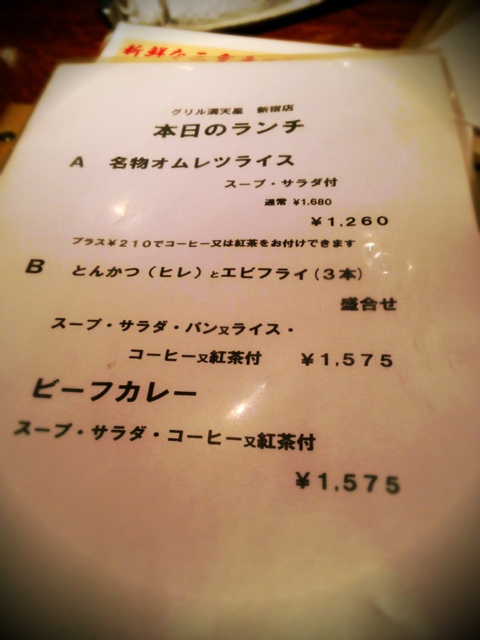 新鮮な三
グリル満天星 新宿店
本日のランチ
A 名物オムレツライス
スープ・サラダ付
通常 ¥1,680
¥1,260
プラス¥210でコーヒー又は紅茶をお付けできます
B とんかつ(ヒレ)とエビフライ(3本)
盛合せ
スープ・サラダ・パン又ライス・
コーヒー又紅茶付 ¥1,575
ビーフカレー
スープ・サラダ・コーヒー又紅茶付
¥1,575